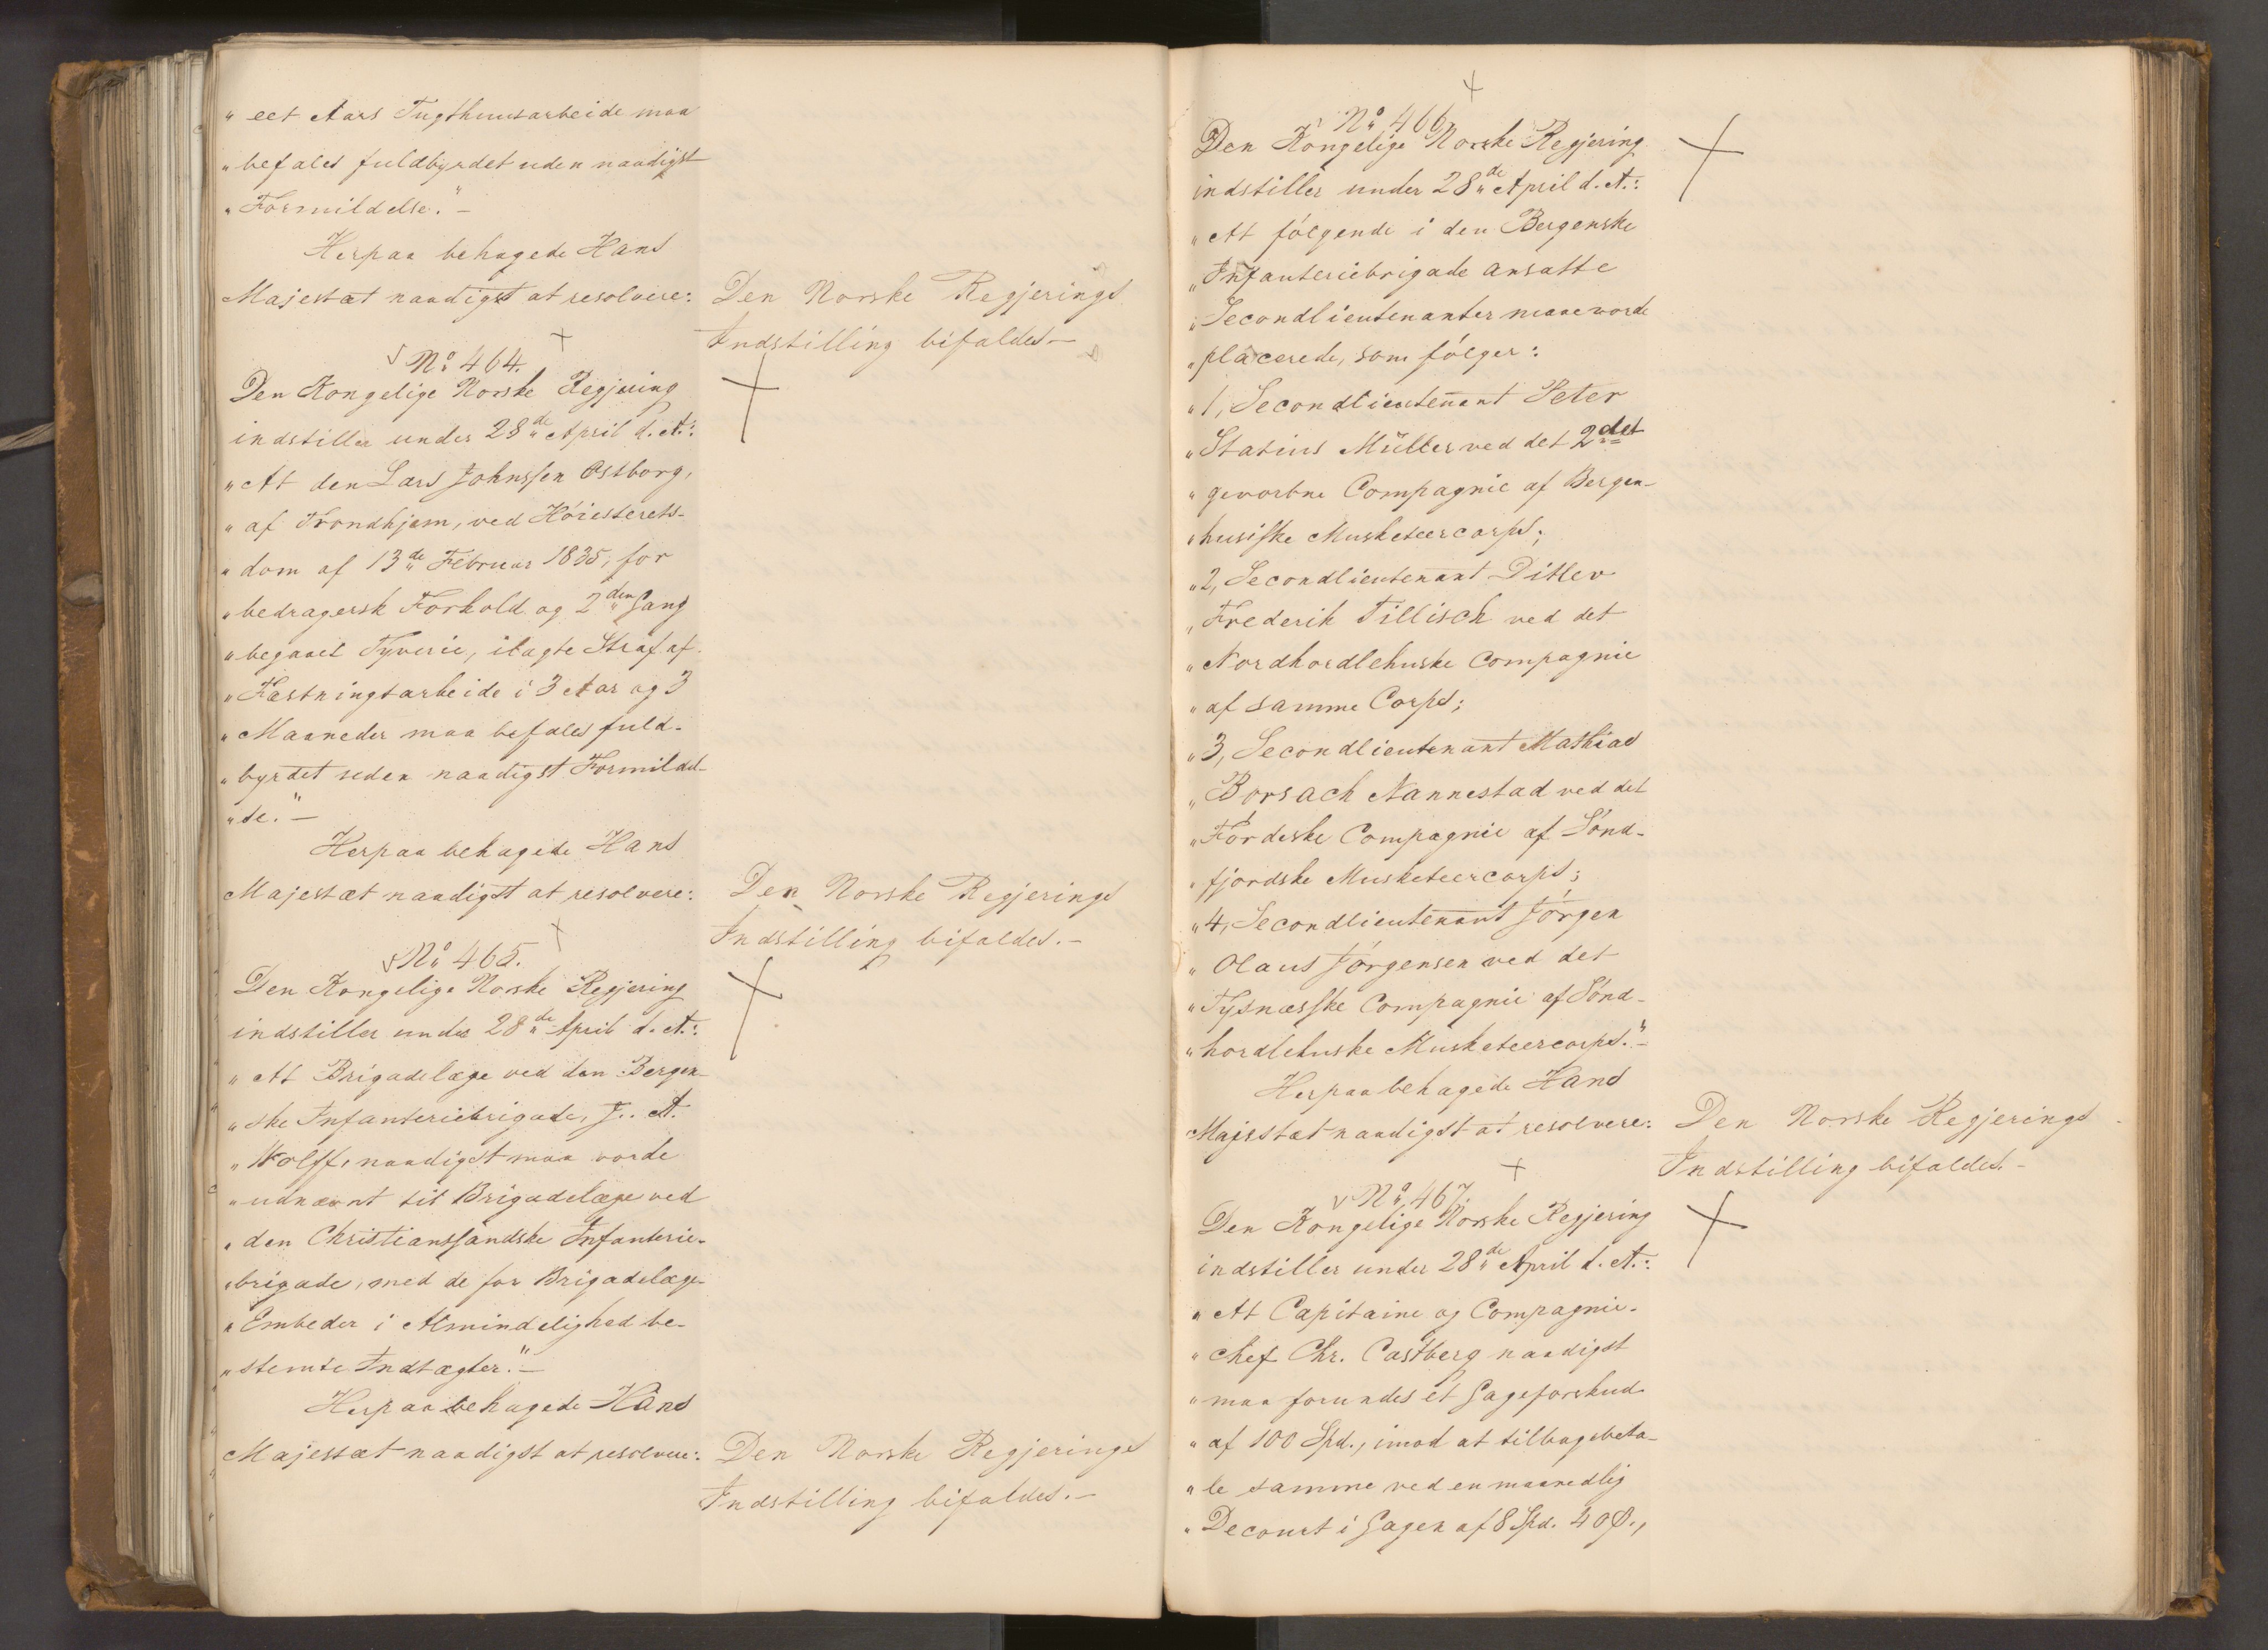 „eet Aars Tugthuusarbeide maa
„befales fuldbyrdet uden naadigst
„Formildelse.“ –
Herpaa behagede Hans
Majestæt naadigst at resolvere:
Den Norske Regjerings
Indstilling bifaldes. –
No 464.
Den Kongelige Norske Regjering
indstiller under 28de April d. A.:
„At den Lars Johnssen Østborg,
„af Trondhjem, ved Höiesterets-
„dom af 13de Februar 1835, for
„bedragersk Forhold og 2den Gang
„begaaet Tyverie, ilagte Straf af
„Fæstningsarbeide i 3 Aar og 3
„Maaneder maa befales fuld-
„byrdet uden naadigst Formildel-
„se.“ –
Herpaa behagede Hans
Majestæt naadigst at resolvere:
Den Norske Regjerings
Indstilling bifaldes. –
No 465.
Den Kongelige Norske Regjering
indstiller under 28de April d. A.:
„At Brigadelæge ved den Bergen-
„ske Infanteriebrigade, J. A.
„Wolff, naadigst maa vorde
„udnævnt til Brigadelæge ved
„den Christianssandske Infanterie-
„brigade, med de for Brigadelæge-
„Embeder i Almindelighed be-
„stemte Indtægter.“ –
Herpaa behagede Hans
Majestæt naadigst at resolvere:
Den Norske Regjerings
Indstilling bifaldes. –
No 466.
Den Kongelige Norske Regjering
indstiller under 28de April d. A.:
„At fölgende i den Bergenske
„Infanteriebrigade ansatte
„Secondlieutenanter maae vorde
„placerede, som fölger:
„1, Secondlieutenant Peter
„Statius Müller ved det 2det
„gevorbne Compagnie af Bergen-
„husiske Musketeercorps;
„2, Secondlieutenant Ditlev
„Frederik Tillisch ved det
„Nordhordlehnske Compagnie
„af samme Corps;
„3, Secondlieutenant Mathias
„Borsach Nannestad ved det
„Fördeske Compagnie af Sönd-
„fjordske Musketeercorps;
„4, Secondlieutenant Jörgen
„Olaus Jörgensen ved det
„Tysnæsske Compagnie af Sönd-
„hordlehnske Musketeercorps.“ –
Herpaa behagede Hans
Majestæt naadigst at resolvere:
Den Norske Regjerings
Indstilling bifaldes. –
No 467.
Den Kongelige Norske Regjering
indstiller under 28de April d. A.:
„At Capitaine og Compagnie-
„chef Chr. Castberg naadigst
„maa forundes et Gageforskud
„af 100 Spd., imod at tilbagebeta-
„le samme ved en maanedlig
„Decourt i Gagen af 8 Spd. 40 β.,